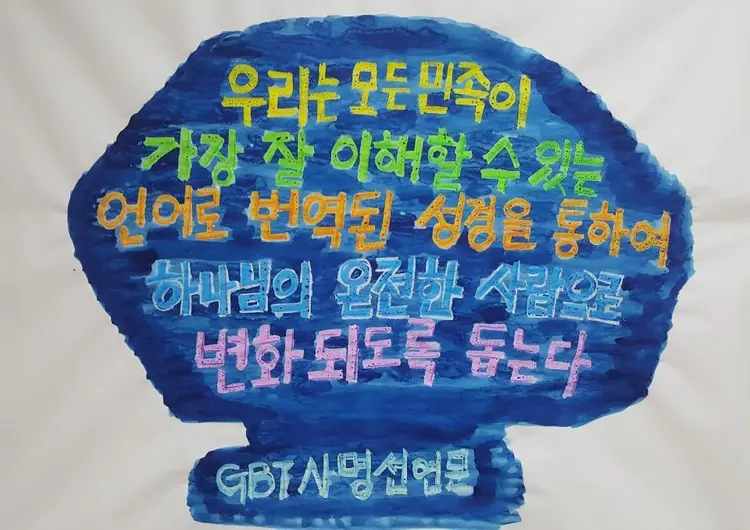 우리는 모든 민족이
가장 잘 이해할 수 있는
언어로 번역된 성경을 통하여
하나님의 온전한 사람으로
변화 되도록 돕는다
GBT 사명선언문